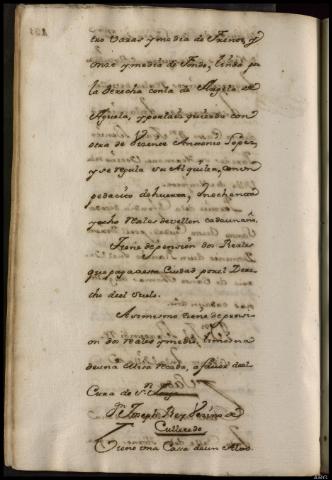 tro Varas y media de Frente, y
onze y media de Fondo, linda por
la Derecha con la de Angela de
Aguela, y por la izquierda con
otra de Vicente Antonio Lopez,
y se regula su Alquiler, con un
pedacito de huerta, en ochenta
y ocho Reales de vellon cada un año,
Tiene de pensión dos Reales
que paga a esta Ciudad por el Dere-
cho del Suelo.
Asimismo tiene de pensi-
on dos reales y medio, limosna
de una Missa Rezada, a favor del
Cura de Sn
Dn Joseph Bez Vezino de
Culleredo
Tiene una Casa de un Alto